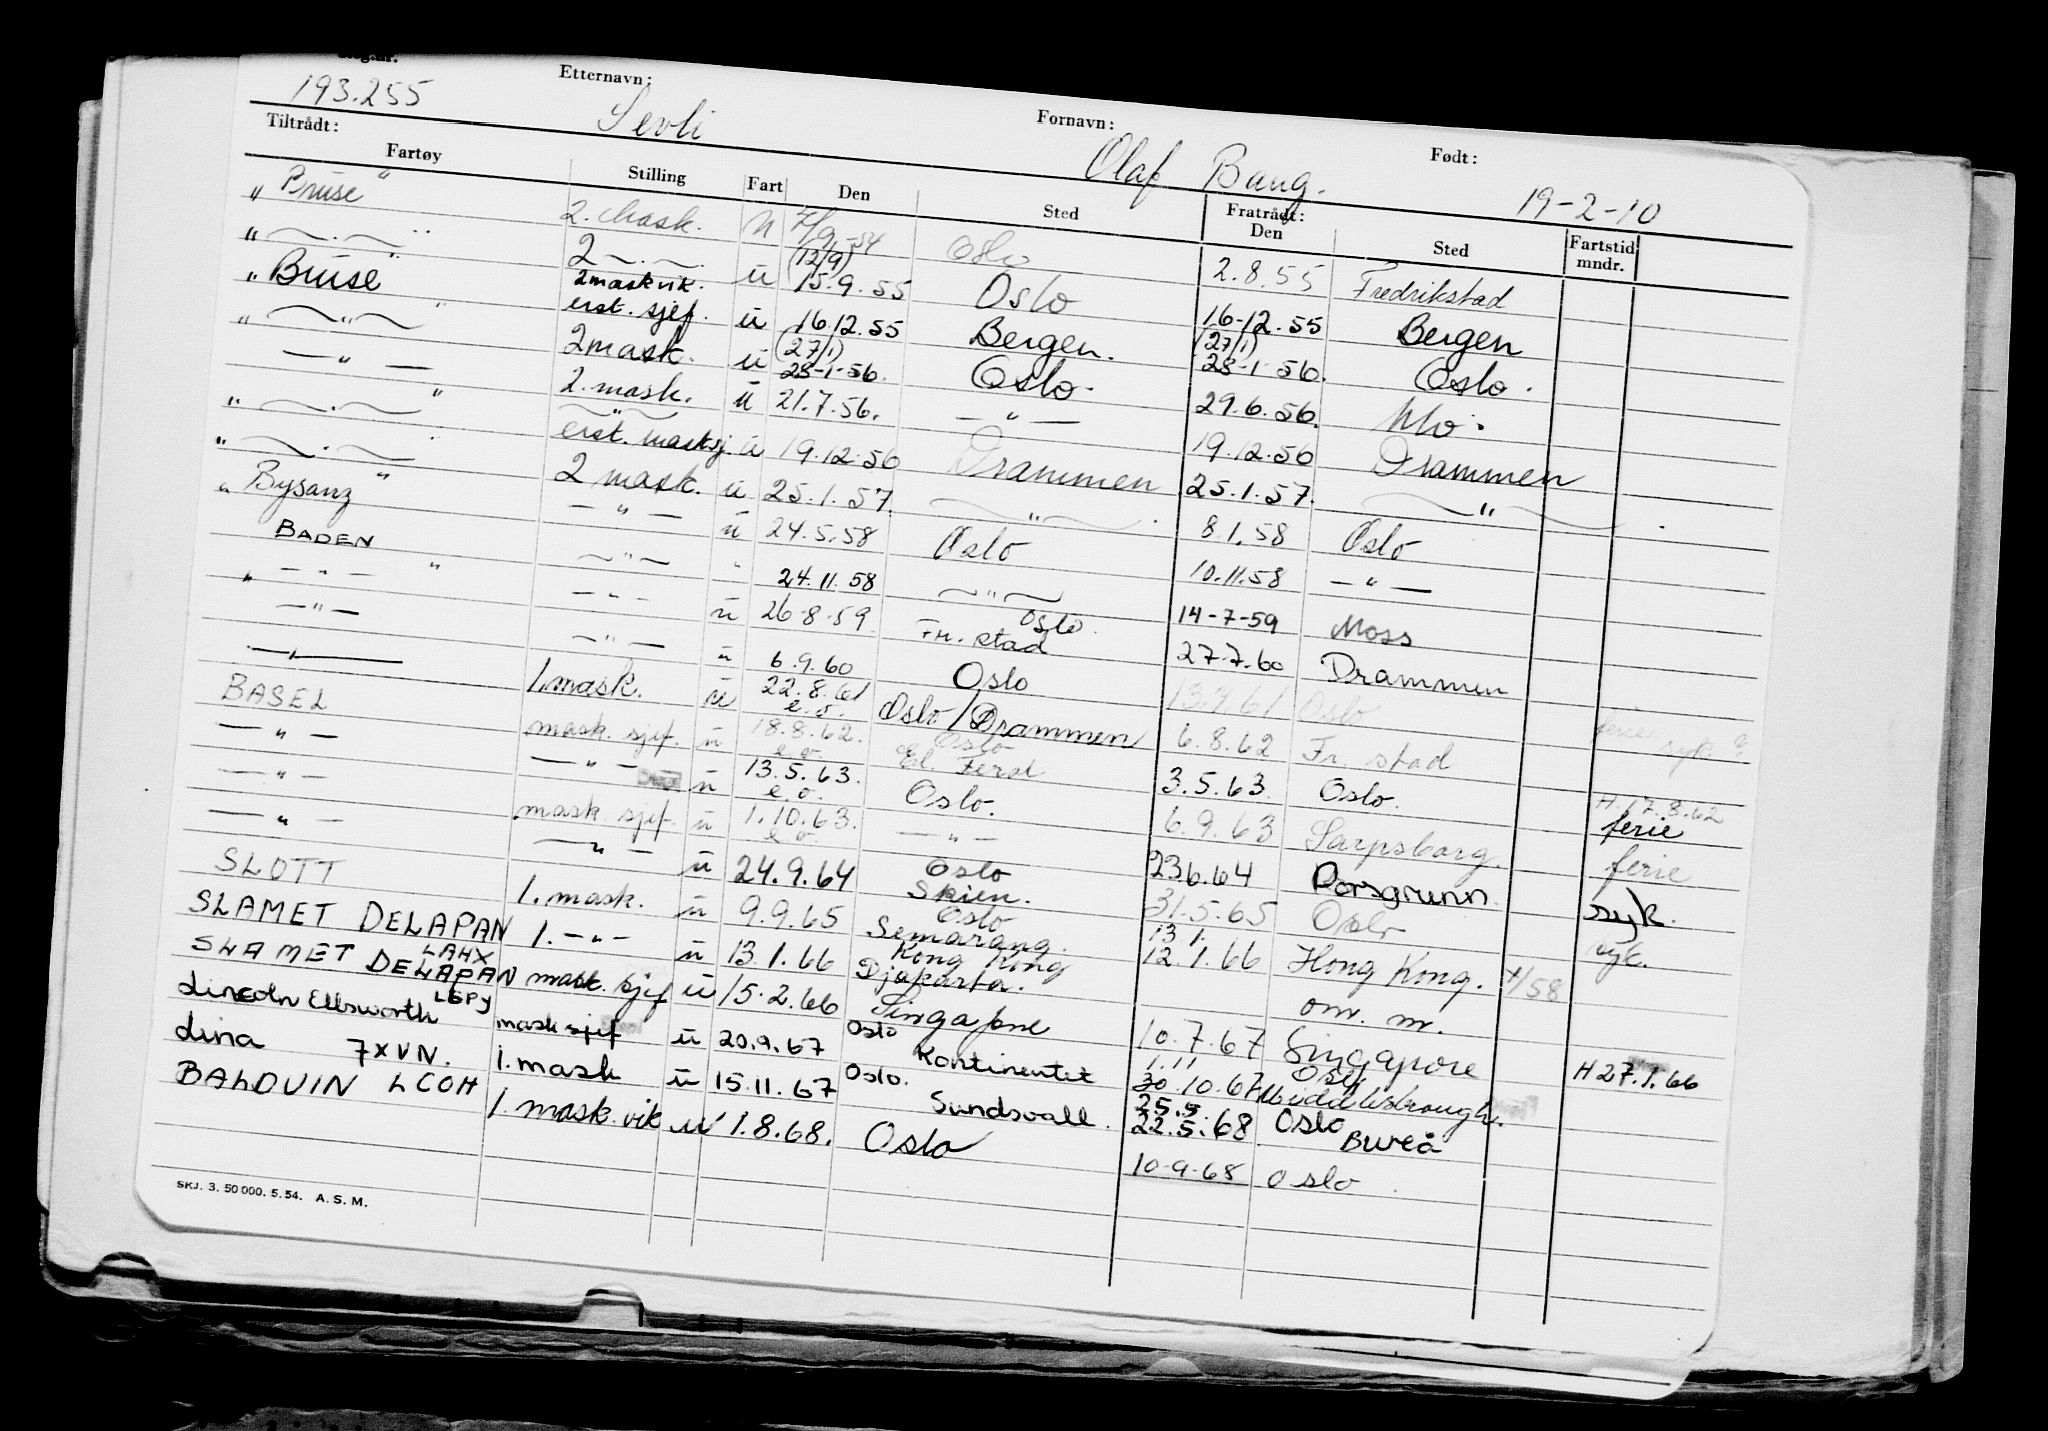 193.255 Etternavn: Sevli Fornavn: Olaf Bang. Født: 19-2-10
Tiltrådt: Fratrådt:
Fartøy Stilling Fart Den Sted Den Sted Fartstid mndr.
„ Bruse " 2. Mask. u /9-54 Oslo 2.8.55 Fredrikstad
„ — . — " 2 — . — (12/9) u 15.9.55 Oslo 16-12.55 Bergen
„ Bruse " 2maskvik. erst. sjef. u 16.12.55 Bergen. (27/1) 28-1-56. Oslo.
„ — " — 2mask. u (27/1) 28-1-56. Oslo. 29.6.56. Mo.
— " — 2. mask. u 21.7.56. — " — 19.12.56 Drammen
„ — . — " — " — erst. masksj u 19.12.56 Drammen 25.1.57. — " — .
„ — . — " 2 mask. u 25.1.57. — " — . 8.1.58 Oslo
„ Bysanz " — " — u 24.5.58 Oslo 10.11.58 — " —
BADEN — " — " 24.11.58 — " — 14-7-59 Moss
„ — " — " — " — u 26-8-59 Oslo. Fr. stad 27.7.60 Drammen
— " — — " — u 6.9.60 Oslo 13.7.61 Oslo ferie syk
— " — 1.mask. u 22.8.61 e.o. Oslo/Drammen 6.8.62 Fr. stad
BASEL mask. sjef. u 18.8.62. e.o. Oslo El. Ferd 3.5.63 Oslo. H. 17.8.62 ferie
— " — — " — u 13.5.63. e.o. Oslo. 6.9.63 Sarpsborg. ferie
— " — mask. sjef. u 1.10.63. e.o. — " — 23.6.64 Porsgrunn. syk.
— " — — " — u 24.9.64 Oslo Skien. 31.5.65 Oslo syk.
SLOTT 1. mask. u 9.9.65 Oslo Semarang. 13.1. 12.1.66 Hong Kong. +/58
SLAMET DELAPAN LAHX 1. — " — u 13.1.66 Kong Kong Djakarta. om. m.
SLAMET DELAPAN mask. sjef u 15.2.66 Singapore 10.7.67 Singapore H 27.1.66
Lincoln Ellsworth LEPJ mask sjef u 20.9.67 Oslo Kontinentet 1.11 30.10.67 Oslo Middlesbrough.
Lina 7XVN. 1.mask u 15.11.67 Oslo. Sundsvall. 25.5. 22.5.68 Oslo Bureå
BALDUIN LCOH 1. mask. vik u 1.8.68. Oslo 10-9-68 Oslo.
SKJ. 3. 50 000. 5. 54. A. S. M.